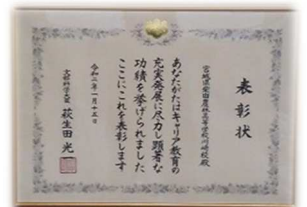 表彰状
宮城県柴田農林高等学校川崎校殿
あなたがたはキャリア教育の
充実発展に尽力し顕著な
功績を挙げられました
ここにこれを表彰します
令和二年一月十五日
文部科学大臣 萩生田光一